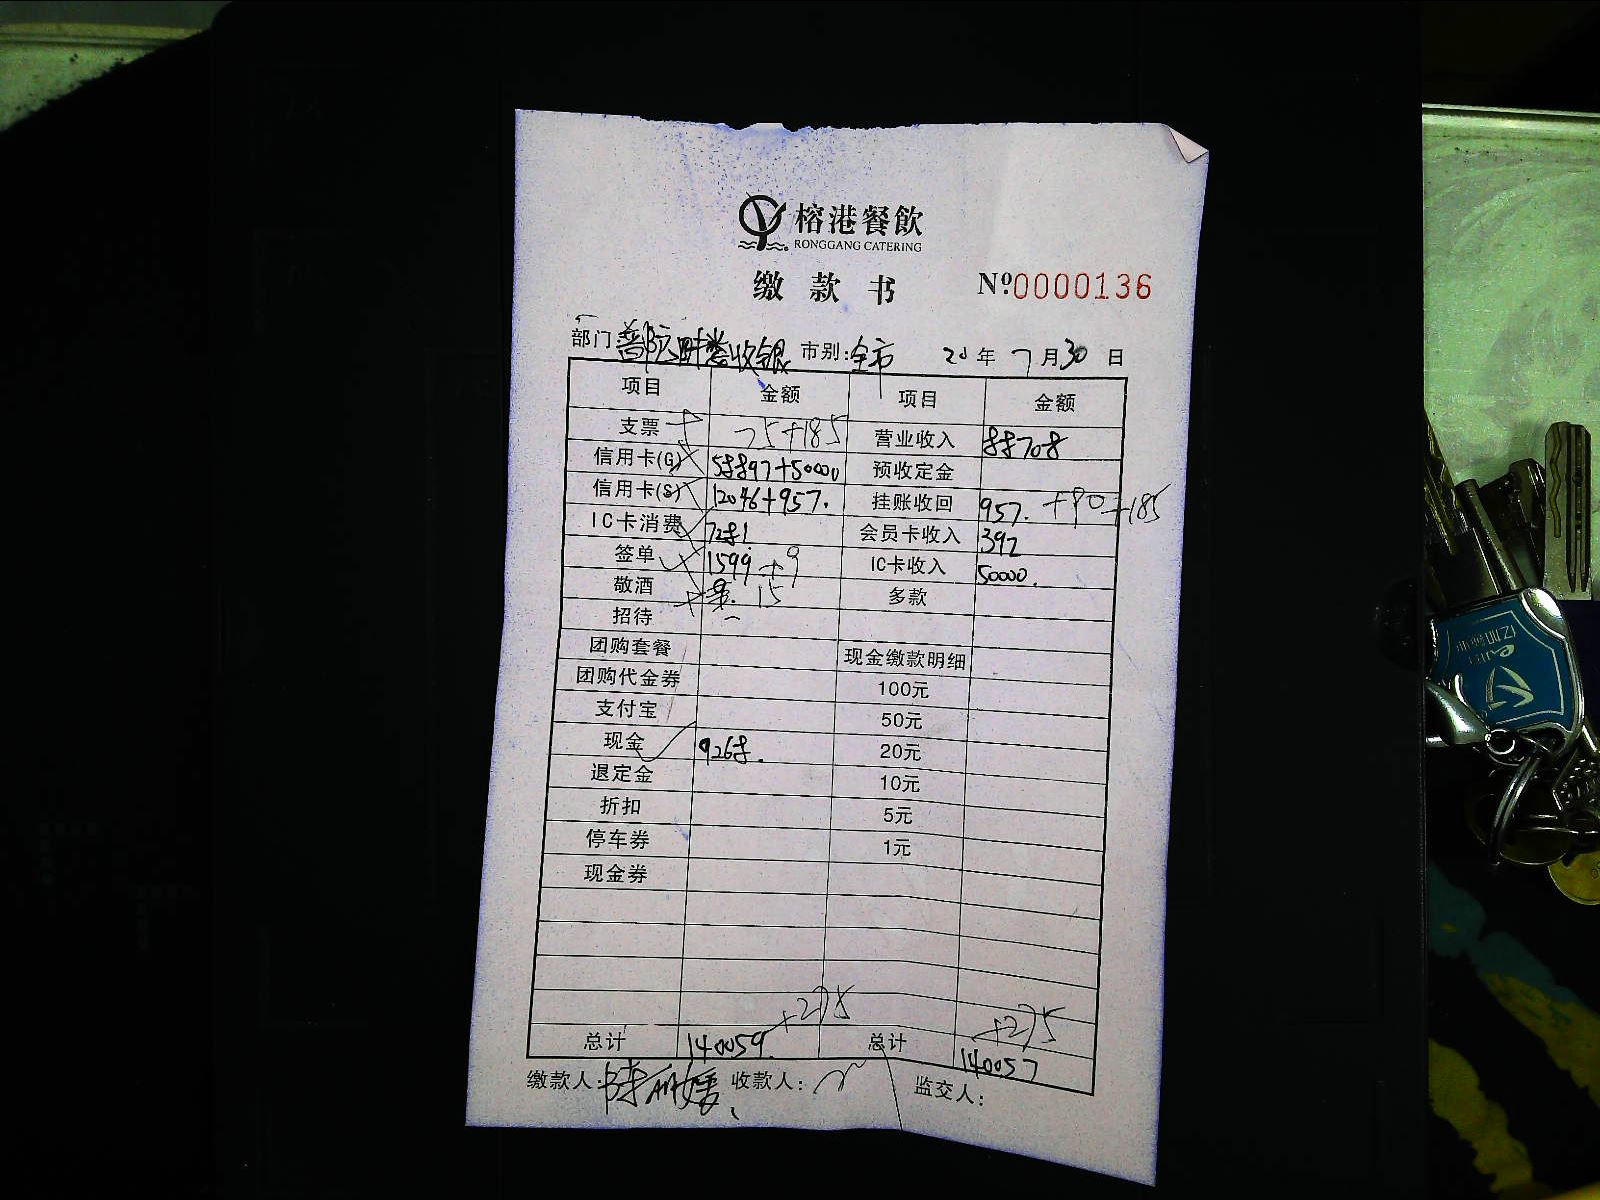 榕港餐飲
RONGGANG CATERING
缴款书 №0000136
部门 收银 市别: 全市 20年7月30日
项目 金额 项目 金额
支票 75+185 营业收入 88708
信用卡(G) 58897+50000 预收定金
信用卡(S) 12046+957. 挂账收回 957. +90+185
IC卡消费 7281 会员卡收入 392
签单 1599+9 IC卡收入 50000.
敬酒 15 多款
招待
团购套餐 现金缴款明细
团购代金券 100元
支付宝 50元
现金 9268. 20元
退定金 10元
折扣 5元
停车券 1元
现金券
+275 +275
总计 140059. 总计 140057
缴款人: 收款人: 监交人: